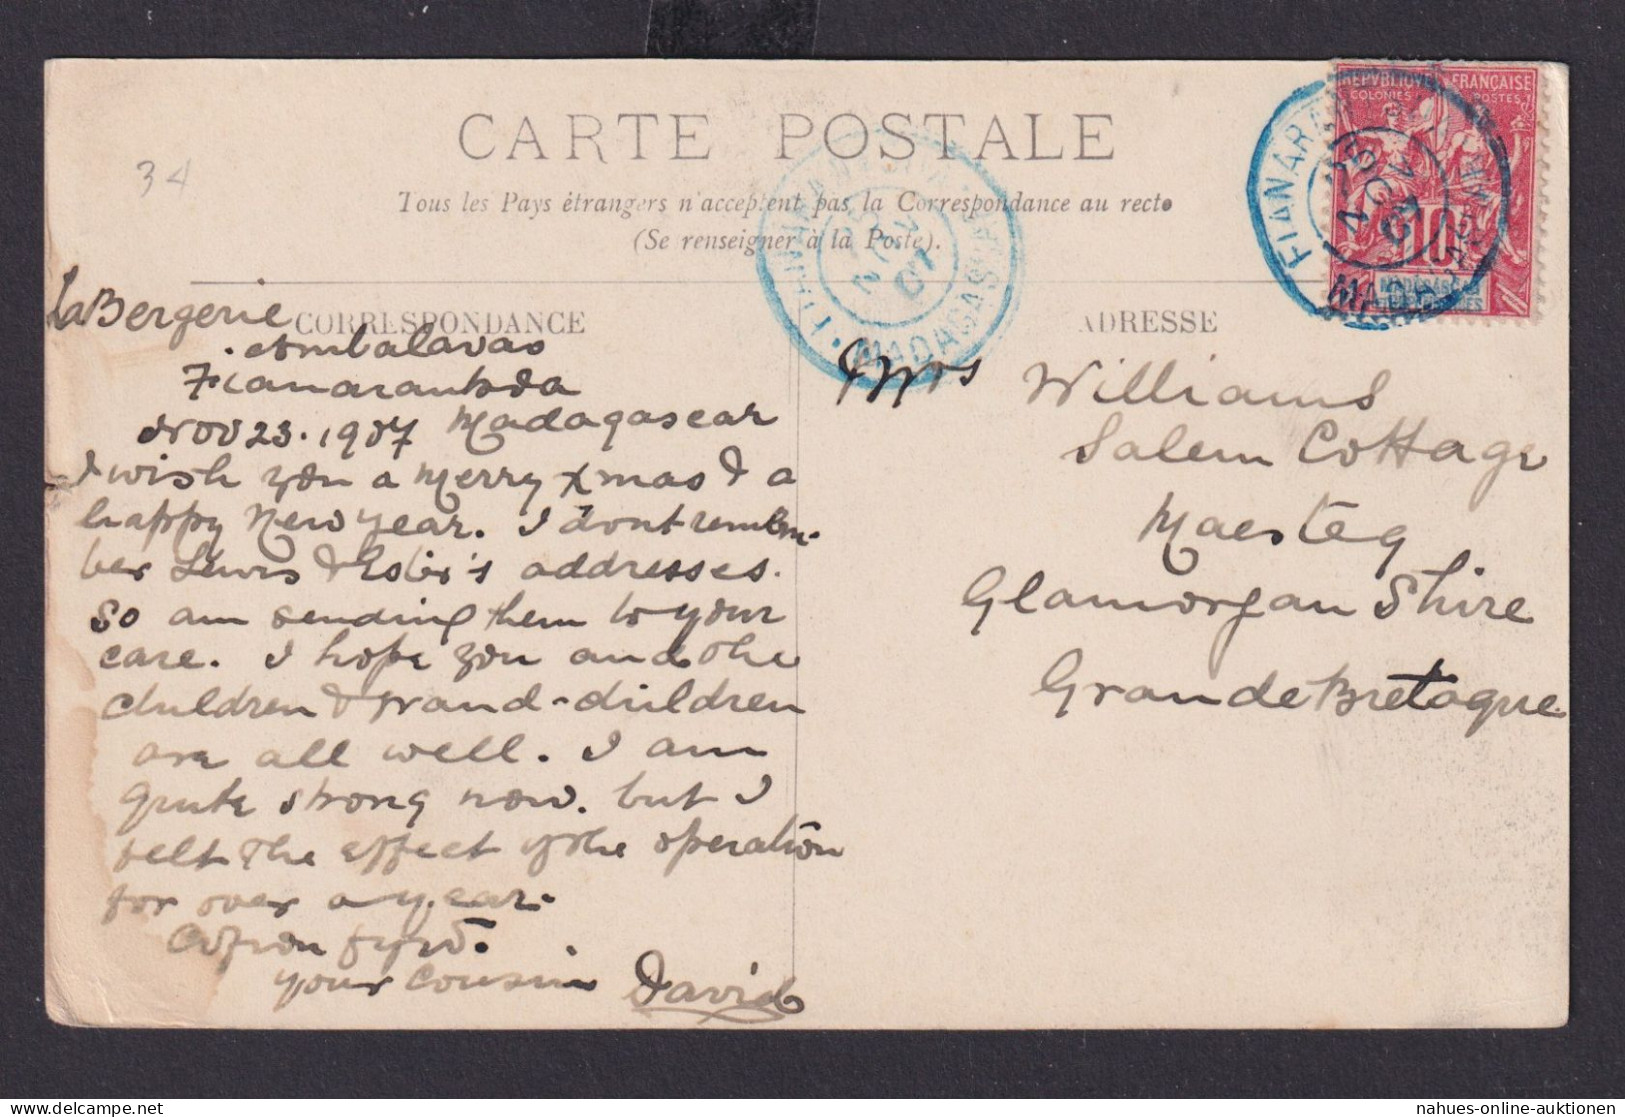 34
CARTE POSTALE
Tous les Pays étrangers n'acceptent pas la Correspondance au recto
(Se renseigner à la Poste).
CORRESPONDANCE
ADRESSE
REPVBLIQVE FRANÇAISE
COLONIES POSTES
10
MADAGASCAR
MADAGASCAR
NOV
07
La Bergerie
Ambalavao
Fianarantsoa
Nov 23. 1907 Madagascar
I wish you a Merry Xmas & a
happy New Year. I dont remem-
ber Lewis & 's addresses.
So am sending them to your
care. I hope you and the
children & grand-children
are all well. I am
quite strong now. but I
felt the effect of the operation
for over a year.
your cousin David
Mrs Williams
Salem Cottage
Maesteg
Glamorgan Shire
Grande Bretagne
nahues-online-auktionen